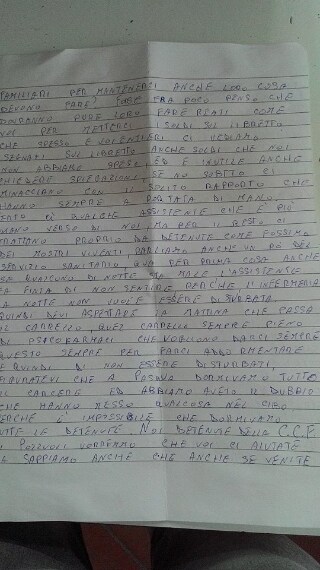 FAMILIARI PER MANTENERCI ANCHE LORO COSA
DEVONO FARE? FORSE FRA POCO PENSO CHE
DOVRANNO PURE LORO FARE REATI COME
NOI PER METTERCI I SOLDI SUL LIBRETTO
CHE SPESSO E VOLENTIERI CI RECLAMO
SEGNATI SUL LIBRETTO ANCHE SOLDI CHE NOI
NON ABBIAMO SPESO ED È INUTILE ANCHE
CHIEDERE SPIEGAZIONI SE NO SUBITO CI
MINACCIANO CON IL SOLITO RAPPORTO CHE
HANNO SEMPRE A PORTATA DI MANO.
DI QUALCHE ASSISTENTE CHE È PIÙ
UMANO VERSO DI NOI MA PER IL RESTO CI
TRATTANO PROPRIO DA DETENUTE COME FOSSIMO
DEI MOSTRI VIVENTI, PARLIAMO ANCHE UN PO DEL
SERVIZIO SANITARIO QUA PER PRIMA COSA ANCHE
SE QUALCUNO DI NOTTE STA MALE L'ASSISTENTE
FA FINTA DI NON SENTIRE PERCHÈ L'INFERMIERA
LA NOTTE NON VUOLE ESSERE DISTURBATA
QUINDI DEVI ASPETTARE LA MATTINA CHE PASSA
IL CARRELLO QUEL CARRELLO SEMPRE PIENO
DI PSICOFARMACI CHE VOGLIONO DARCI SEMPRE
QUESTO SEMPRE PER FARCI ADDORMENTARE
E QUINDI DI NON ESSERE DISTURBATI,
FIGURATEVI CHE A PASQUA DORMIVAMO TUTTO
IL CARCERE ED ABBIAMO AVUTO IL DUBBIO
CHE HANNO MESSO QUALCOSA NEL CIBO
PERCHÈ È IMPOSSIBILE CHE DORMIVAMO
TUTTE LE DETENUTE. NOI DETENUTE DELLA C.C.F.
DI POZZUOLI VORREMMO CHE VOI CI AIUTATE
SAPPIAMO ANCHE CHE ANCHE SE VENITE